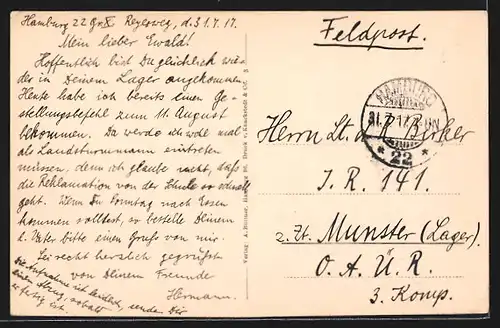 Hamburg 22 Reyesweg, d. 31.7.17.
Mein lieber Ewald!
Hoffentlich bist Du glücklich wie-
der in Deinem Lager angekommen.
Heute habe ich bereits einen Ge-
stellungsbefehl zum 11. August
bekommen. Da werde ich wohl mal
als Landsturmmann eintreten
müssen, denn ich glaube nicht, daß
die Reklamation von der Schule so schnell
geht. Wenn Du Sonntag nach
kommen solltest, so bestelle Deinem
l. Vater bitte einen Gruß von mir.
Sei recht herzlich gegrüßt
von Deinem Freunde
Hermann.
Die Aufnahme ist
einen Abzug, sobald
fertig ist. sende Dir
Verlag A. Büttner, Druck v. Knackstedt & Co.
Feldpost.
HAMBURG
31.7.17.
* 22 *
Herrn Lt. d. R. Birker
I. R. 141.
z. Zt. Munster (Lager)
O. A. Ü. R.
3. Komp.